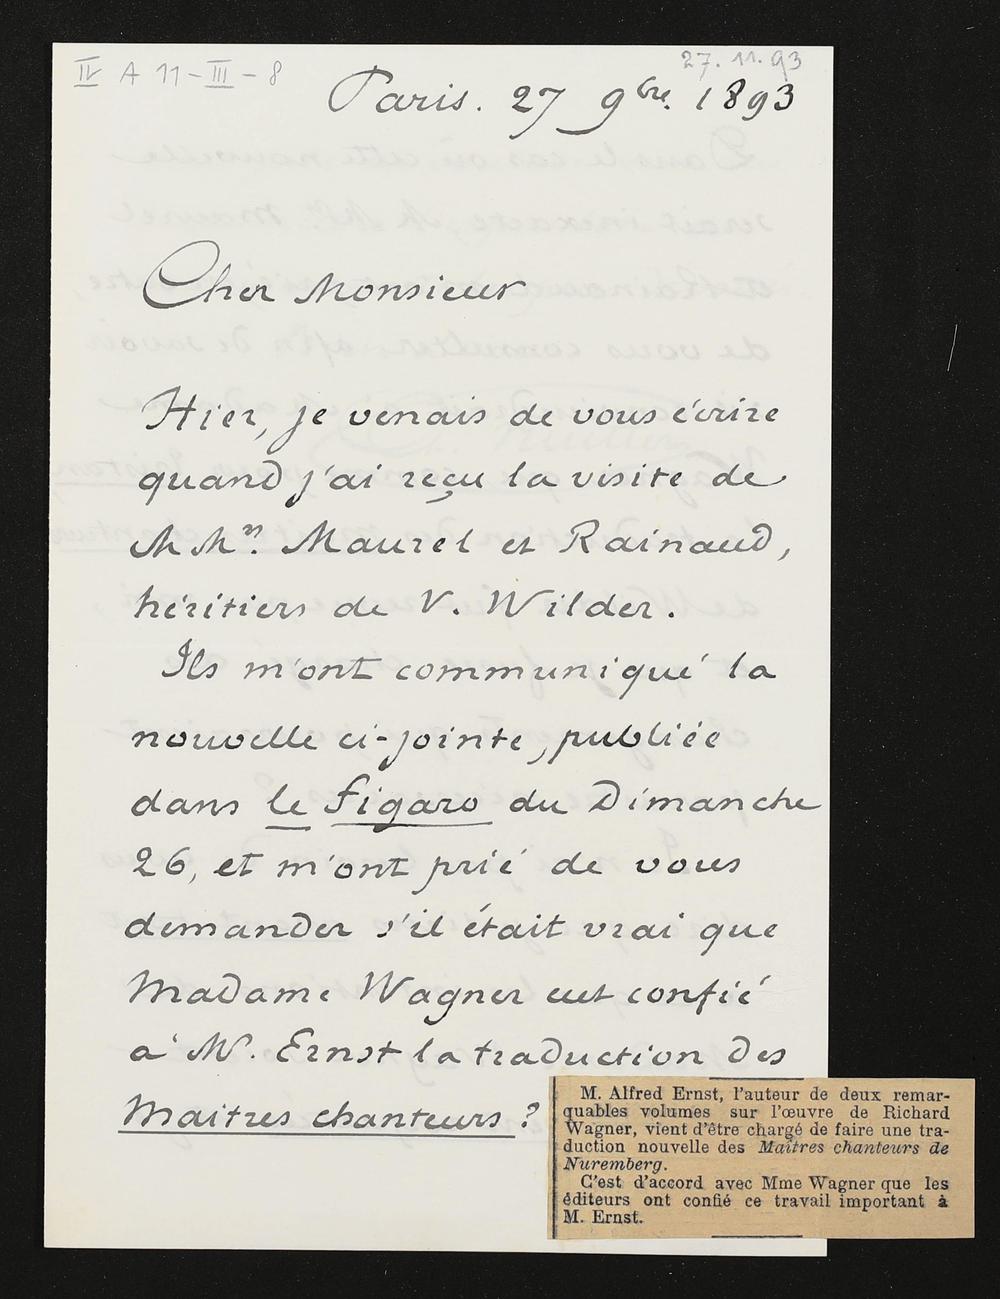 IV A 11-III-8
27.11.93
Paris. 27 9bre. 1893
Cher Monsieur
Hier, je venais de vous écrire
quand j'ai reçu la visite de
M Mrs. Maurel et Rainaud,
héritiers de V. Wilder.
Ils m'ont communiqué la
nouvelle ci-jointe, publiée
dans le Figaro du Dimanche
26, et m'ont prié de vous
demander s'il était vrai que
Madame Wagner eut confié
à M. Ernst la traduction des
Maitres chanteurs?
M. Alfred Ernst, l'auteur de deux remar-
quables volumes sur l'œuvre de Richard
Wagner, vient d'être chargé de faire une tra-
duction nouvelle des Maîtres chanteurs de
Nuremberg.
C'est d'accord avec Mme Wagner que les
éditeurs ont confié ce travail important à
M. Ernst.